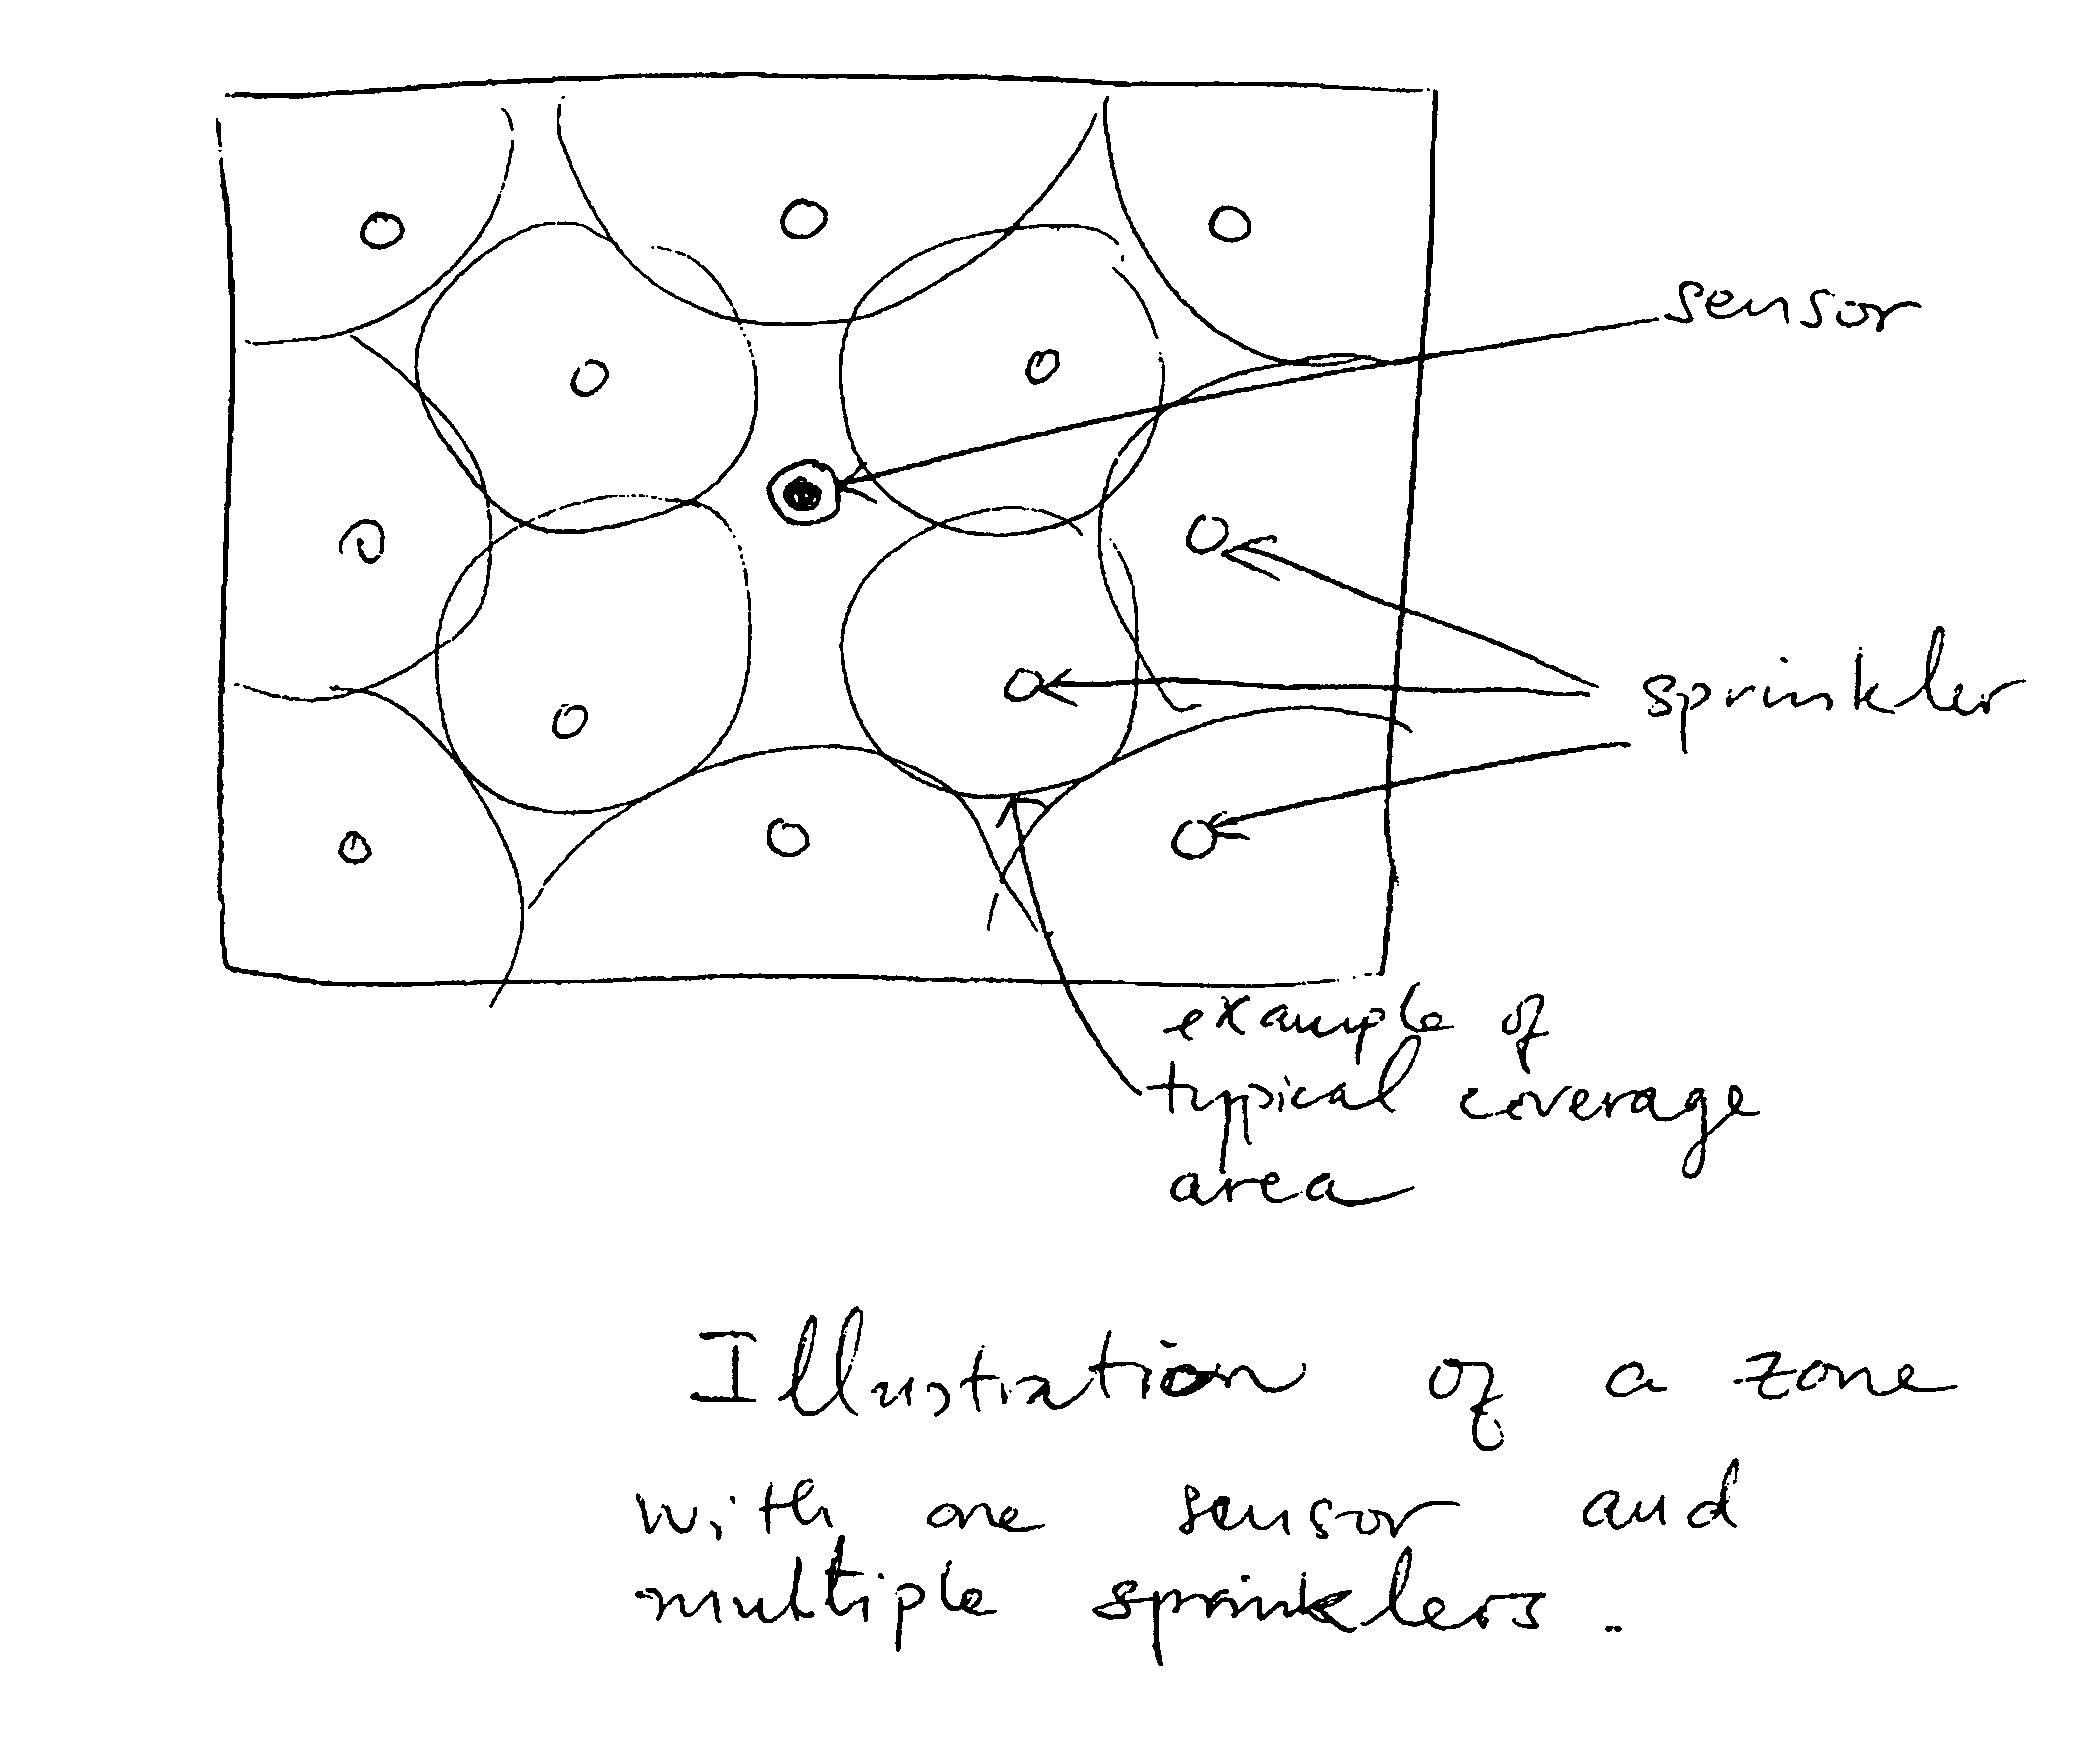 sensor
sprinkler
example of
typical coverage
area
Illustration of a zone
with one sensor and
multiple sprinklers.